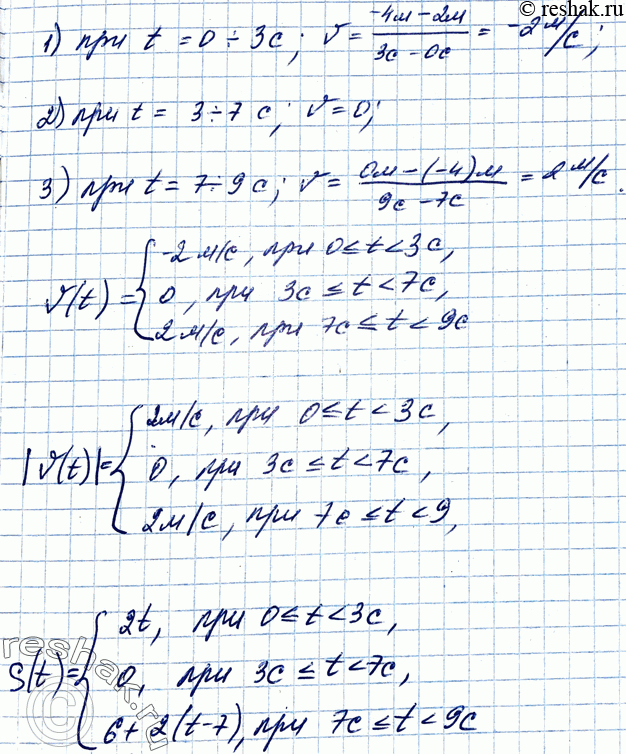 © reshak.ru
1) при t = 0 ÷ 3с; v = (-4м - 2м)/(3с - 0с) = -2 м/с;
2) при t = 3 ÷ 7 с; v = 0;
3) при t = 7 ÷ 9с; v = (0м - (-4)м)/(9с - 7с) = 2 м/с.
v(t) = { -2 м/с, при 0 ≤ t < 3с,
0, при 3с ≤ t < 7с,
2 м/с, при 7с ≤ t < 9с
|v(t)| = { 2м/с, при 0 ≤ t < 3с,
0, при 3с ≤ t < 7с,
2м/с, при 7с ≤ t < 9,
S(t) = { 2t, при 0 ≤ t < 3с,
0, при 3с ≤ t < 7с,
6 + 2(t - 7), при 7с ≤ t < 9с
reshak.ru